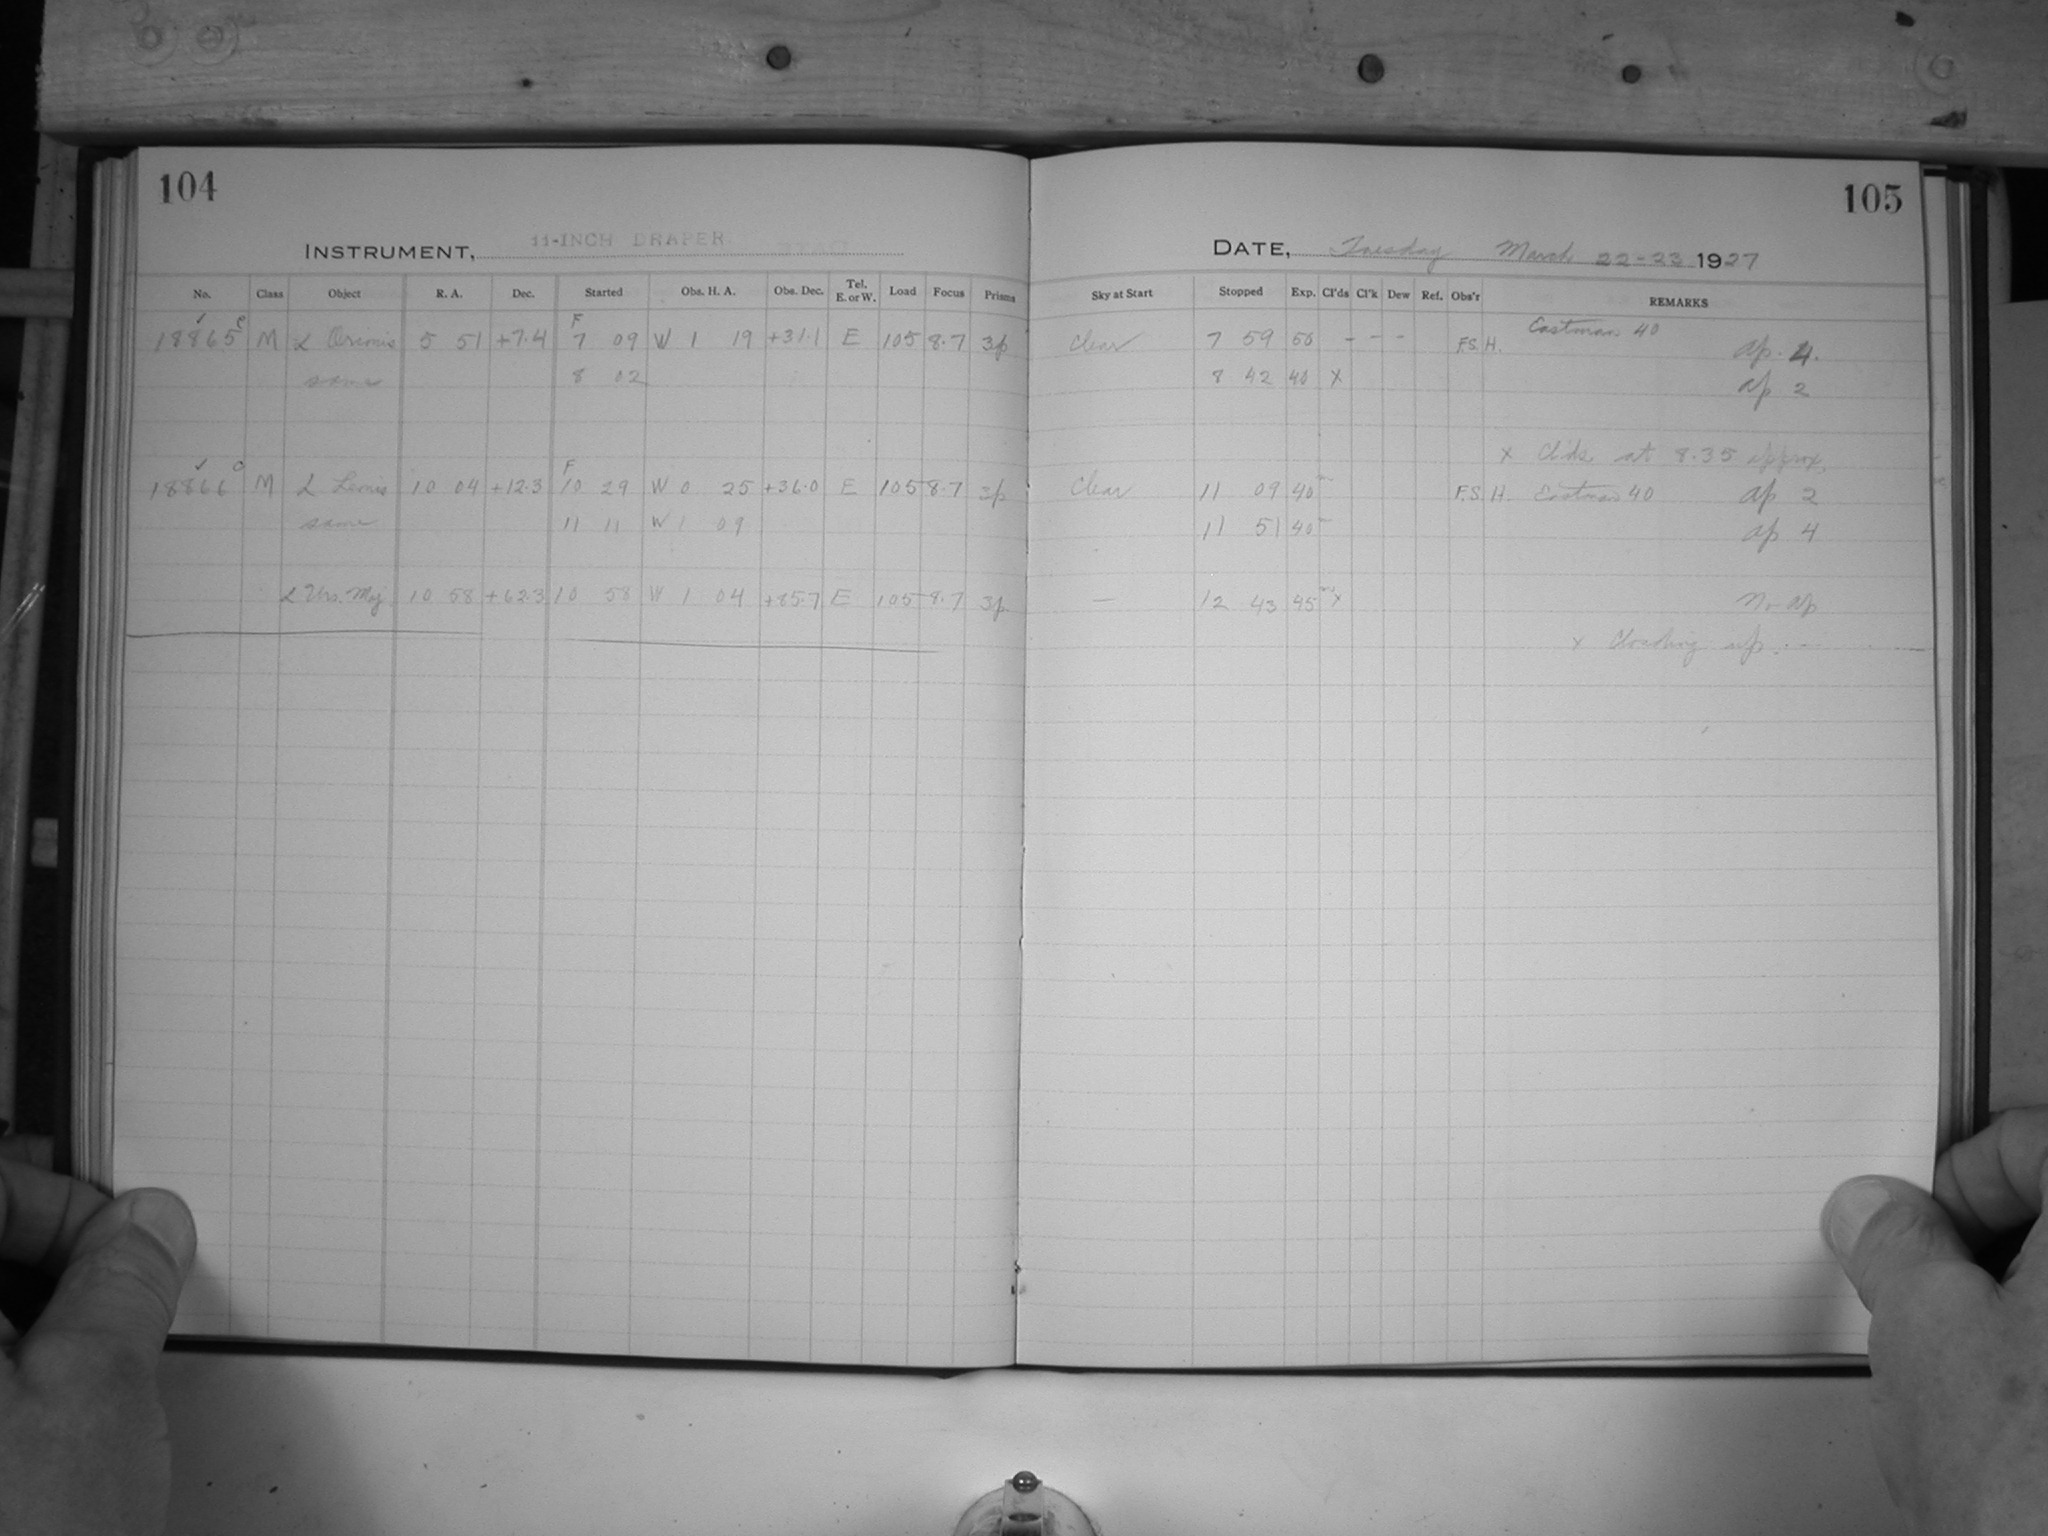 104
INSTRUMENT, 11-INCH DRAPER
No. Class Object R. A. Dec. Started Obs. H. A. Obs. Dec. Tel. E. or W. Load Focus Prisms
F
18865 M α Orionis 5 51 +7.4 7 09 W 1 19 +31.1 E 105 8.7 3p
same 8 02
F
18866 M α Leonis 10 04 +12.3 10 29 W 0 25 +36.0 E 105 8.7 3p
same 11 11 W 1 09
α Urs. Maj 10 58 +62.3 10 58 W 1 04 +85.7 E 105 8.7 3p
105
DATE, Tuesday March 22-23 1927
Sky at Start Stopped Exp. Cl'ds Cl'k Dew Ref. Obs'r REMARKS
Clear 7 59 50 - - - F.S.H. Eastman 40 ap. 4.
8 42 40 x ap 2
x Clds at 8.35 approx.
Clear 11 09 40m F.S.H. Eastman 40 ap 2
11 51 40m ap 4
— 12 43 45m x No ap
x Clouding up.